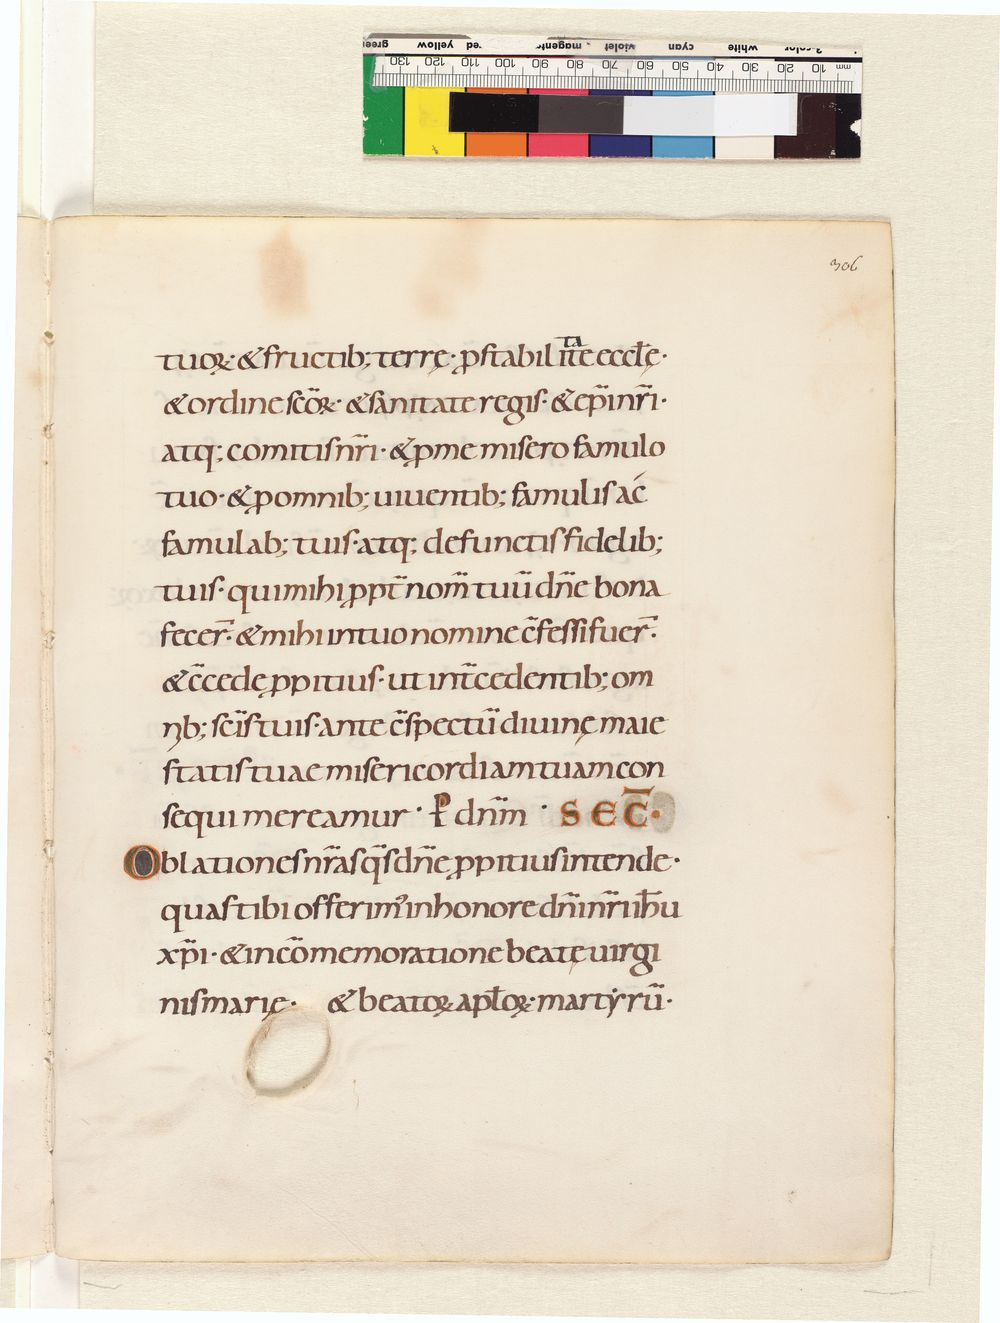 3-color white cyan violet magenta red yellow green
mm 10 20 30 40 50 60 70 80 90 100 110 120 130
306
tuoꝝ· & fructib; terrę· ꝓstabilitate eccłę·
& ordine sc̄oꝝ· & sanitate regis· & ep̄i nr̄i·
atq; comitis nr̄i· & ꝓ me misero famulo
tuo· & ꝓ omnib; uiuentib; famulis ac̄
famulab; tuis· atq; defunctis fidelib;
tuis· qui mihi ꝓpt̄ nom̄ tuū dn̄e bona
fecer̄· & mihi in tuo nomine c̄fessi fuer̄·
& c̄cede ꝓpitius· ut int̄cedentib; om
nb; sc̄is tuis· ante c̄spectū diuinę maie
statis tuae misericordiam tuam con
sequi mereamur · P dn̄m · SEC̄·
Oblationes nr̄as qs̄ dn̄e ꝓpitius intende·
quas tibi offerim᾽ in honore dn̄i nr̄i ih̄u
xp̄i· & in cōmemoratione beatę uirgi
nis marię· & beatoꝝ apłoꝝ· martẏrū·